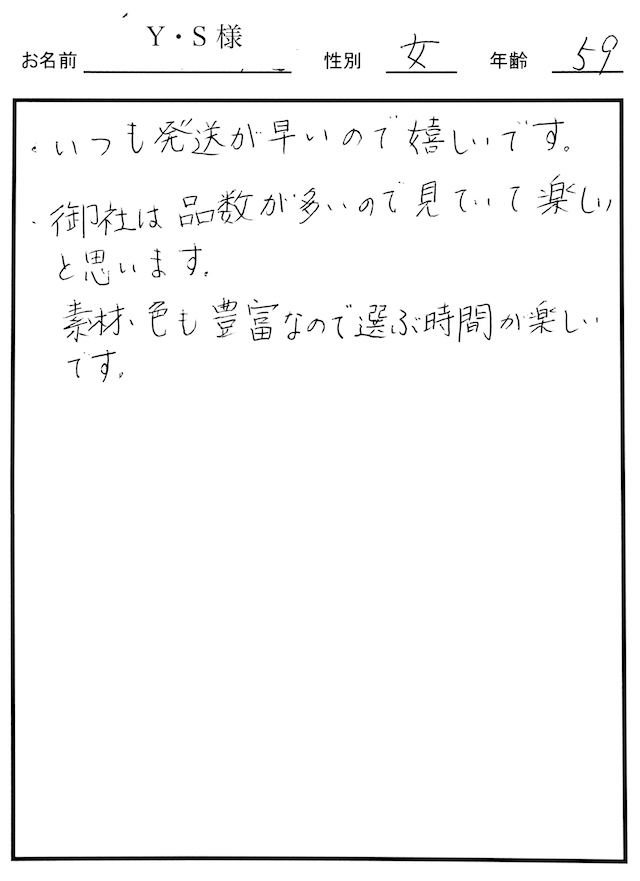 お名前 Y・S様 性別 女 年齢 59
・いつも発送が早いので嬉しいです。
・御社は品数が多いので見ていて楽しい
と思います。
素材、色も豊富なので選ぶ時間が楽しい
です。